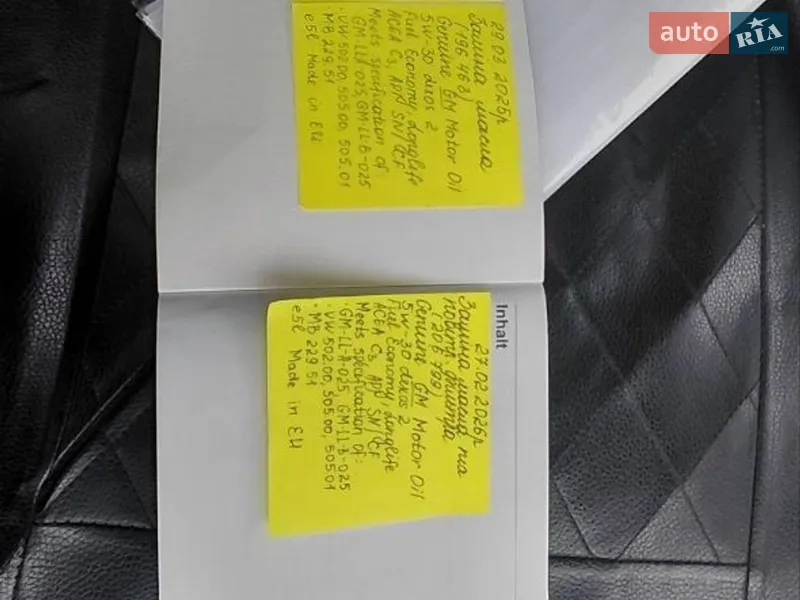 auto RIA.com
29.03.2025р
Заміна масла
(196 463)
Genuine GM Motor Oil
5W-30 dexos 2
Fuel Economy, Longlife
ACEA C3, API SN/CF
Meets specification of
GM-LL-A-025, GM-LL-B-025
· VW 502.00, 505.00, 505.01
· MB 229.51
e5l Made in EU
Inhalt
27.02.2026р
Заміна масла та
повітр. фільтра
(206 799)
Genuine GM Motor Oil
5W-30 dexos 2
Fuel Economy, Longlife
ACEA C3, API SN/CF
Meets specification of:
· GM-LL-A-025, GM-LL-B-025
· VW 502.00, 505.00, 505.01
· MB 229.51
e5l Made in EU